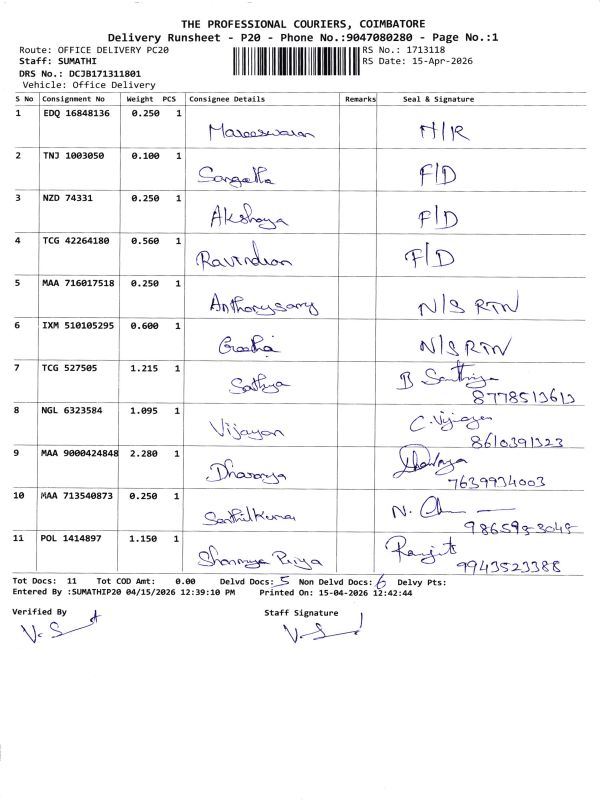 THE PROFESSIONAL COURIERS, COIMBATORE
Delivery Runsheet - P20 - Phone No.:9047080280 - Page No.:1
Route: OFFICE DELIVERY PC20 RS No.: 1713118
Staff: SUMATHI RS Date: 15-Apr-2026
DRS No.: DCJB171311801
Vehicle: Office Delivery
S No Consignment No Weight PCS Consignee Details Remarks Seal & Signature
1 EDQ 16848136 0.250 1 Mareeswaran H/R
2 TNJ 1003050 0.100 1 Sangetha F/D
3 NZD 74331 0.250 1 Akshaya F/D
4 TCG 42264180 0.560 1 Ravindran F/D
5 MAA 716017518 0.250 1 Anthonysamy N/S RTN
6 IXM 510105295 0.600 1 N/S RTN
7 TCG 527505 1.215 1 Sathya B Santhiya
8778513613
8 NGL 6323584 1.095 1 Vijayan C. Vijayan
8610391323
9 MAA 9000424848 2.280 1 Dharanya
7639934003
10 MAA 713540873 0.250 1 Senthilkumar N.
11 POL 1414897 1.150 1 Shanmuga Priya Ranjit
9943523388
Tot Docs: 11 Tot COD Amt: 0.00 Delvd Docs: 5 Non Delvd Docs: 6 Delvy Pts:
Entered By :SUMATHIP20 04/15/2026 12:39:10 PM Printed On: 15-04-2026 12:42:44
Verified By Staff Signature
V. S V. S